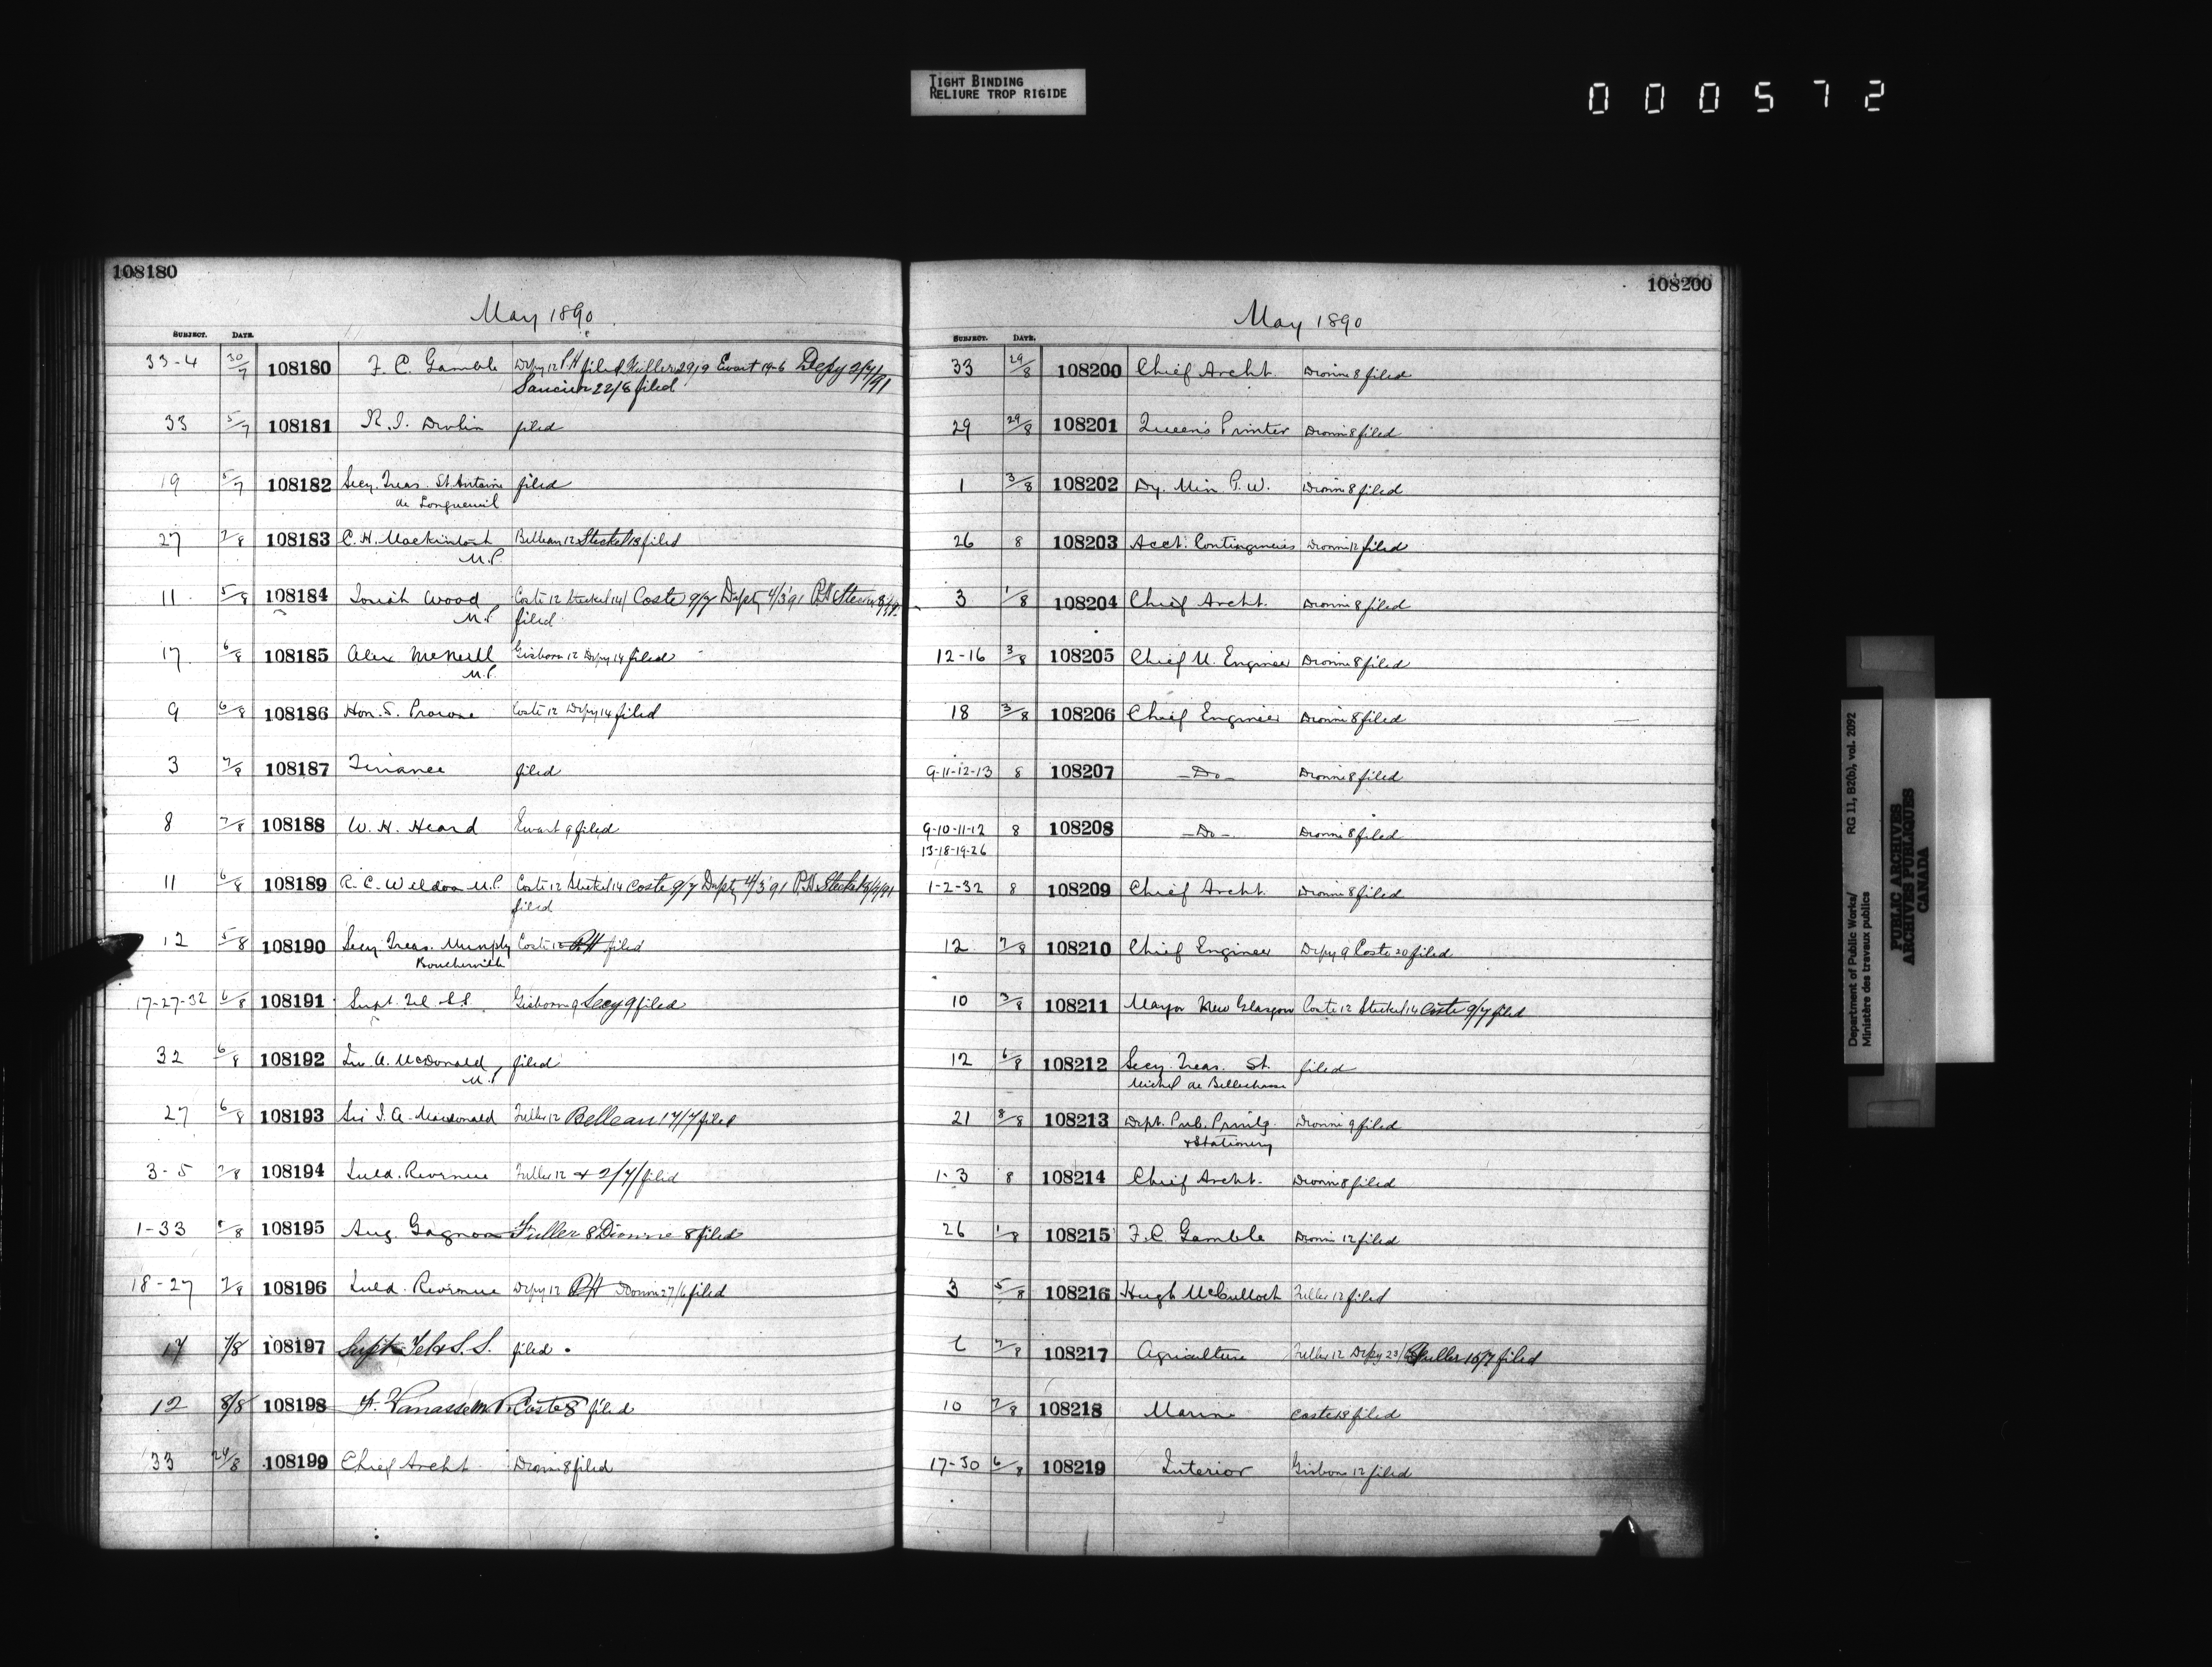 TIGHT BINDING
RELIURE TROP RIGIDE
000572
108180
May 1890
SUBJECT. DATE.
33-4 30/7 108180 F. C. Gamble Depy 12 P.H filed Fuller 29/9 Ewart 19-6 Depy 2/7/91
Saucier 22/6 filed
33 5/7 108181 R. I. Devlin filed
19 5/7 108182 Secy. Treas. St. Antoine filed
de Longueuil
27 7/8 108183 C. H. Mackintosh Belleau 12 Steckel 18 filed
M.P.
11 5/8 108184 Josiah Wood Coste 12 Steckel 14 Coste 9/7 Depty 4/3'91
M.P. filed
17 6/8 108185 Alex McNeill Gisborne 12 Depy 14 filed
M.P.
9 6/8 108186 Hon. S. Prowse Coste 12 Depy 14 filed
3 7/8 108187 Finance filed
8 7/8 108188 W. H. Heard Ewart 9 filed
11 6/8 108189 R. C. Weldon M.P. Coste 12 Steckel 14 Coste 9/7 Depty 4/3'91 P.H. Steckel
filed
12 5/8 108190 Secy. Treas. Municply Coste 12 P.H filed
Boucherville
17-27-32 6/8 108191 Supt. Tel. S.S. Gisborne 9 Secy 9 filed
32 6/8 108192 A. McDonald filed
M.P.
27 6/8 108193 Sir J. A. Macdonald Fuller 12 Belleau 17/7 filed
3-5 7/8 108194 Inld. Revenue Fuller 12 & 2/7/ filed
1-33 /8 108195 Aug. Gagnon Fuller 8 Dionne 8 filed
18-27 7/8 108196 Inld. Revenue Depy 12 P.H Dionne 27/6 filed
17 7/8 108197 Supt. Tel S.S. filed
12 8/8 108198 F. Vanasse M.P. Coste 8 filed
33 29/8 108199 Chief Archt. Dionne 8 filed
108200
May 1890
SUBJECT. DATE.
33 29/8 108200 Chief Archt. Dionne 8 filed
29 29/8 108201 Queen's Printer Dionne 8 filed
1 3/8 108202 Dy. Min. P.W. Dionne 8 filed
26 8 108203 Acct. Contingencies Dionne 12 filed
3 1/8 108204 Chief Archt. Dionne 8 filed
12-16 3/8 108205 Chief M. Engineer Dionne 8 filed
18 3/8 108206 Chief Engineer Dionne 8 filed
9-11-12-13 8 108207 -Do- Dionne 8 filed
9-10-11-12 8 108208 -Do- Dionne 8 filed
13-18-19-26
1-2-32 8 108209 Chief Archt. Dionne 8 filed
12 7/8 108210 Chief Engineer Depy 9 Coste 20 filed
10 3/8 108211 Mayor New Glasgow Coste 12 Steckel 14 Coste 9/7 filed
12 6/8 108212 Secy. Treas. St. filed
Michel de Bellechasse
21 8/8 108213 Dept. Pub. Printg. Dionne 9 filed
& Stationery
1-3 8 108214 Chief Archt. Dionne 8 filed
26 1/8 108215 F. C. Gamble Dionne 12 filed
3 5/8 108216 Hugh McCulloch Fuller 12 filed
7/8 108217 Agriculture Fuller 12 Depy 23/ Fuller 15/7 filed
10 7/8 108218 Marine Coste 19 filed
17-30 6/8 108219 Interior Gisborne 12 filed
Department of Public Works/ RG 11, B2(b), vol. 2092
Ministère des travaux publics
PUBLIC ARCHIVES
ARCHIVES PUBLIQUES
CANADA